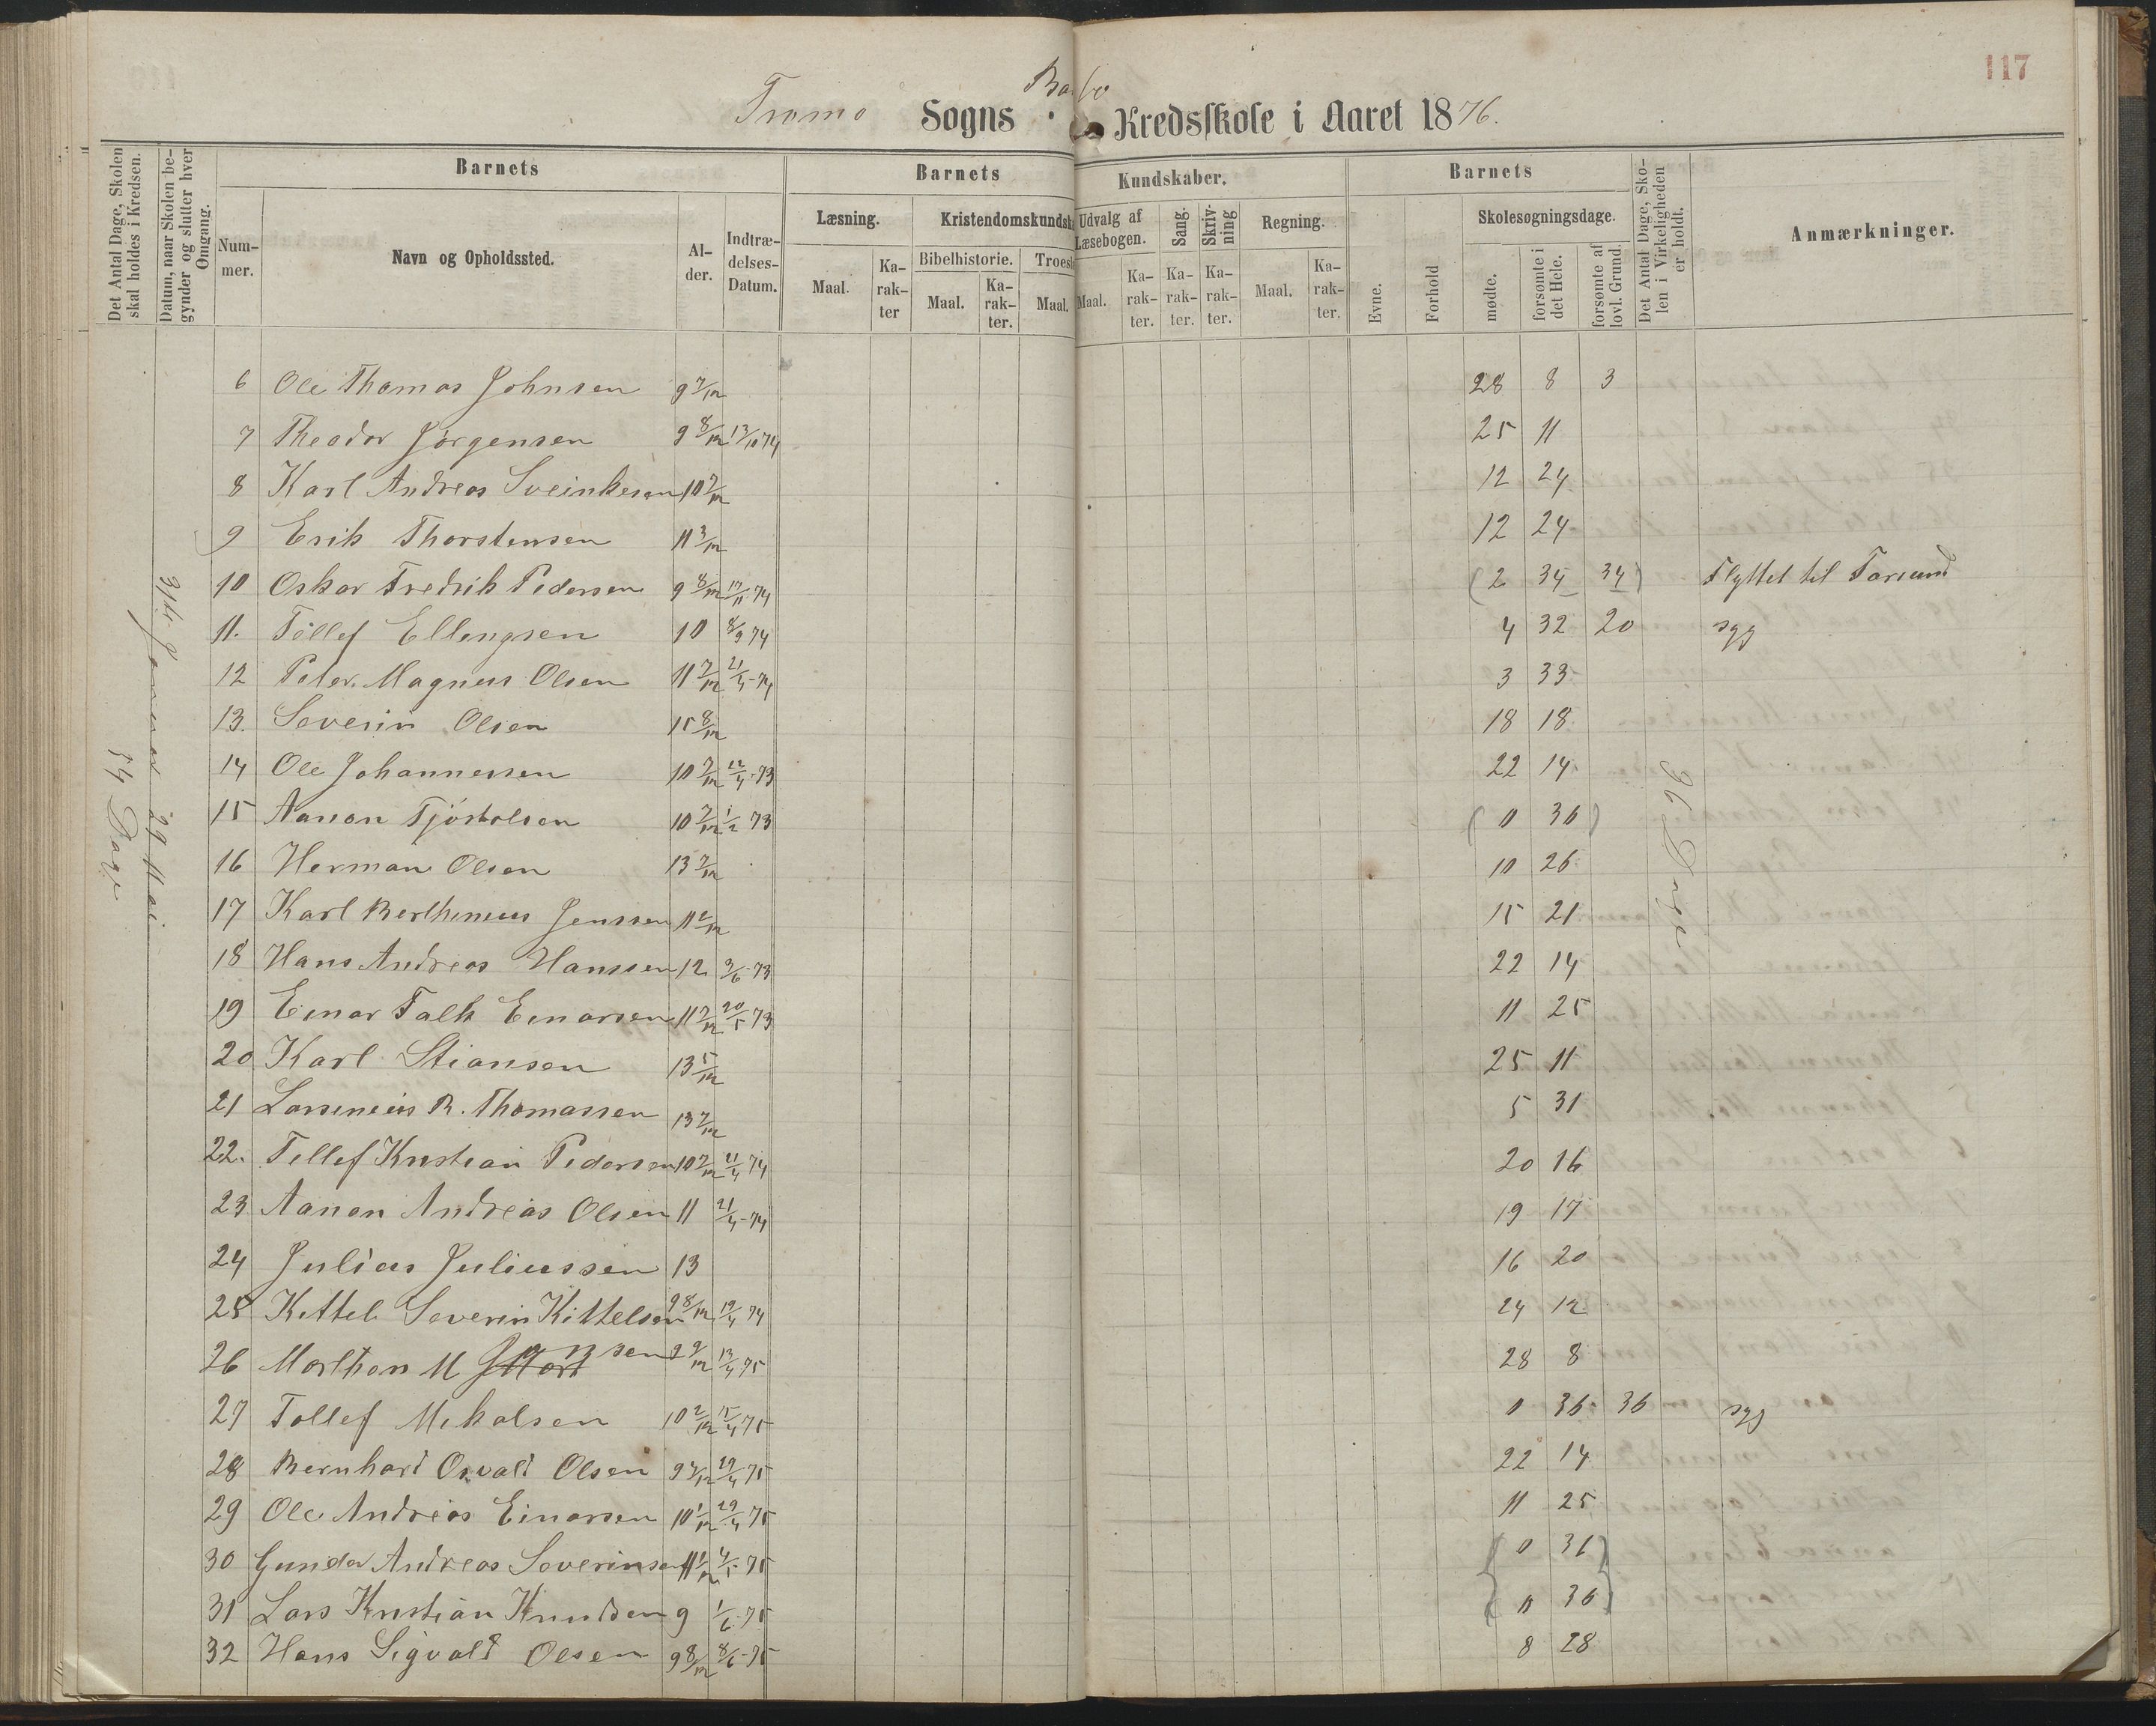 117
Tromø Sogns Barbo Kredsskole i Aaret 1876.
Det Antal Dage, Skolen skal holdes i Kredsen.
Datum, naar Skolen begynder og slutter hver Omgang.
Barnets
Nummer.
Navn og Opholdssted.
Alder.
Indtrædelses-Datum.
Barnets Kundskaber.
Læsning.
Maal.
Karakter
Kristendomskundsk
Bibelhistorie.
Maal.
Karakter.
Troesl
Maal.
Udvalg af Læsebogen.
Maal.
Karakter.
Sang.
Karakter.
Skrivning
Karakter.
Regning.
Maal.
Karakter.
Barnets
Evne.
Forhold
Skolesøgningsdage.
mødte.
forsømte i det Hele.
forsømte af lovl. Grund.
Det Antal Dage, Skolen i Virkeligheden er holdt.
Anmærkninger.
54 Dage
Januar 29 Mai
36 Dage
6 Ole Thomas Johnsen 9 7/12 28 8 3
7 Theodor Jørgensen 9 8/12 13/10 74 25 11
8 Karl Andreas Sveinkesen 10 7/12 12 24
9 Erik Thorstensen 11 3/12 12 24
10 Oskar Fredrik Pedersen 9 8/12 17/11 74 (2 34 34) Flyttet til
11. Tellef Ellingsen 10 8/9 74 4 32 20 syg
12 Peter Magnus Olsen 11 7/12 21/4-74 3 33
13. Severin Olsen 15 8/12 18 18
14 Ole Johannessen 10 7/12 22/4-73 22 14
15 Aanon Tjøstolsen 10 7/12 1/2 73 (0 36)
16 Herman Olsen 13 7/12 10 26
17 Karl Berthineus Jenssen 11 2/12 15 21
18 Hans Andreas Hanssen 12 3/6-73 22 14
19 Einar Falk Einarsen 11 7/12 20/5 73 11 25
20 Karl Stiansen 13 5/12 25 11
21 Larsineius B. Thomassen 13 7/12 5 31
22. Tellef Kristian Pedersen 10 7/12 21/4 74 20 16
23 Aanon Andreas Olsen 11 21/4-74 19 17
24 Julius Juliussen 13 16 20
25 Kittel Severin Kittelsen 9 8/12 19/4 74 24 12
26 Morthen M Jansen 9 9/12 13/4 75 28 8
27 Tollef Mikalsen 10 2/12 15/4 75 0 36 36 syg
28 Bernhard Osvald Olsen 9 4/12 29/4 75 22 14
29 Ole Andreas Einarsen 10 1/12 29/4 75 11 25
30 Gunder Andreas Severinsen 11 1/12 4/5-75 0 36
31 Lars Kristian Knudsen 9 1/6-75 0 36
32 Hans Sigvald Olsen 9 8/12 8/6-75 8 28